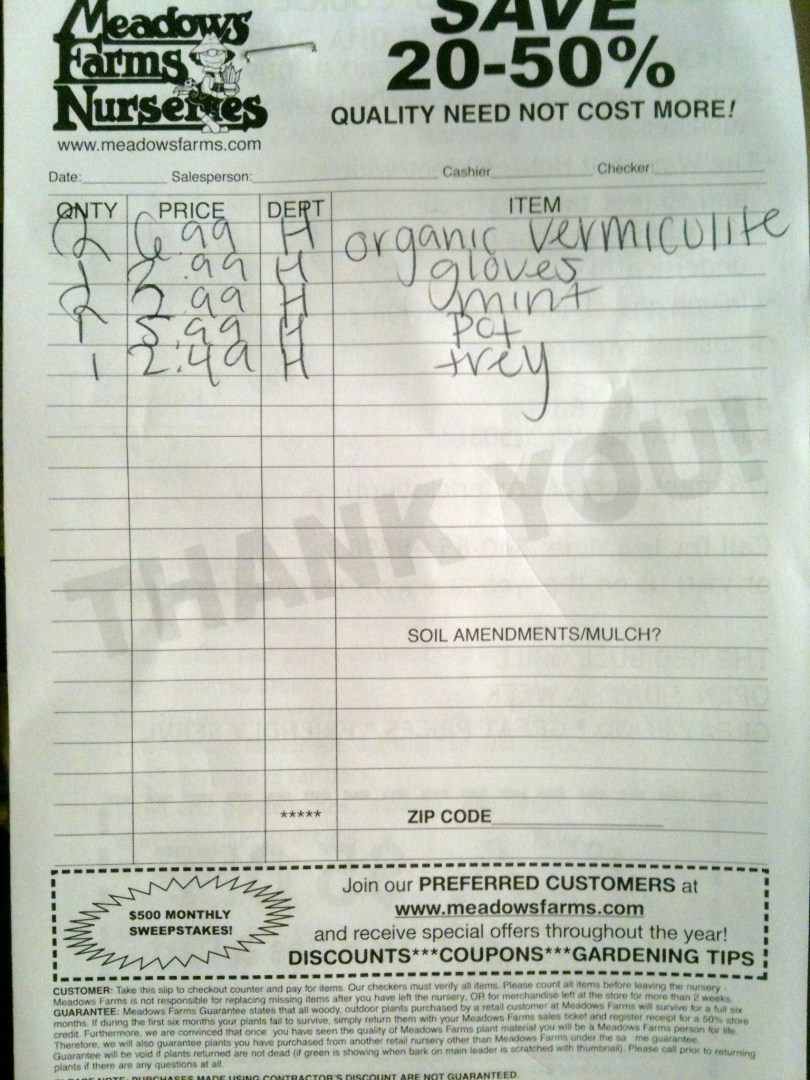 Meadows
Farms
Nurseries
www.meadowsfarms.com
SAVE
20-50%
QUALITY NEED NOT COST MORE!
Date: Salesperson: Cashier Checker:
QNTY PRICE DEPT ITEM
2 6.99 H organic vermiculite
1 2.99 H gloves
2 2.99 H mint
1 5.99 H pot
1 2.49 H trey
THANK YOU!
SOIL AMENDMENTS/MULCH?
***** ZIP CODE
$500 MONTHLY
SWEEPSTAKES!
Join our PREFERRED CUSTOMERS at
www.meadowsfarms.com
and receive special offers throughout the year!
DISCOUNTS***COUPONS***GARDENING TIPS
CUSTOMER: Take this slip to checkout counter and pay for items. Our checkers must verify all items. Please count all items before leaving the nursery -
Meadows Farms is not responsible for replacing missing items after you have left the nursery, OR for merchandise left at the store for more than 2 weeks.
GUARANTEE: Meadows Farms Guarantee states that all woody, outdoor plants purchased by a retail customer at Meadows Farms will survive for a full six
months. If during the first six months your plants fail to survive, simply return them with your Meadows Farms sales ticket and register receipt for a 50% store
credit. Furthermore, we are convinced that once you have seen the quality of Meadows Farms plant material you will be a Meadows Farms person for life.
Therefore, we will also guarantee plants you have purchased from another retail nursery other than Meadows Farms under the sa me guarantee.
Guarantee will be void if plants returned are not dead (if green is showing when bark on main leader is scratched with thumbnail). Please call prior to returning
plants if there are any questions at all.
PLEASE NOTE: PURCHASES MADE USING CONTRACTOR'S DISCOUNT ARE NOT GUARANTEED.